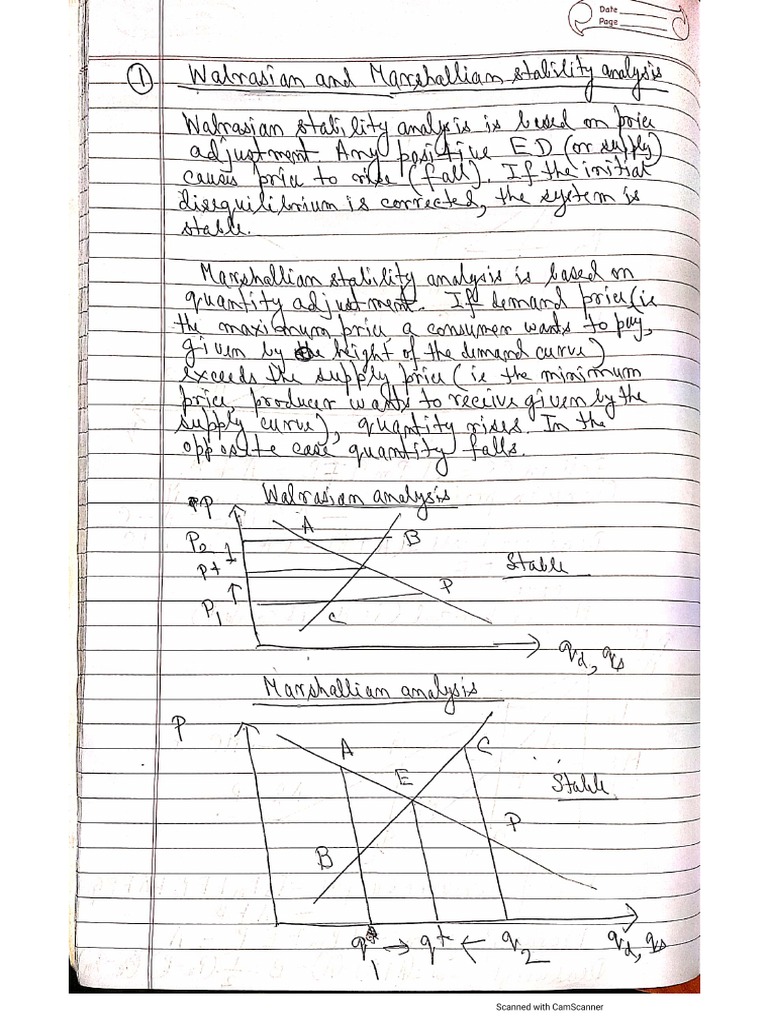 Date
Page
1 Walrasian and Marshallian stability analysis
Walrasian stability analysis is based on price
adjustment. Any positive ED (or supply)
causes price to rise (fall). If the initial
disequilibrium is corrected, the system is
stable.
Marshallian stability analysis is based on
quantity adjustment. If demand price (ie
the maximum price a consumer wants to pay,
given by the height of the demand curve)
exceeds the supply price (ie the minimum
price producer wants to receive given by the
supply curve), quantity rises. In the
opposite case quantity falls.
Walrasian analysis
P
A
B
P2
Stable
P*
P
P1
C
qd, qs
Marshallian analysis
P
A
C
E
Stable
P
B
q1 → q* ← q2
qd, qs
Scanned with CamScanner